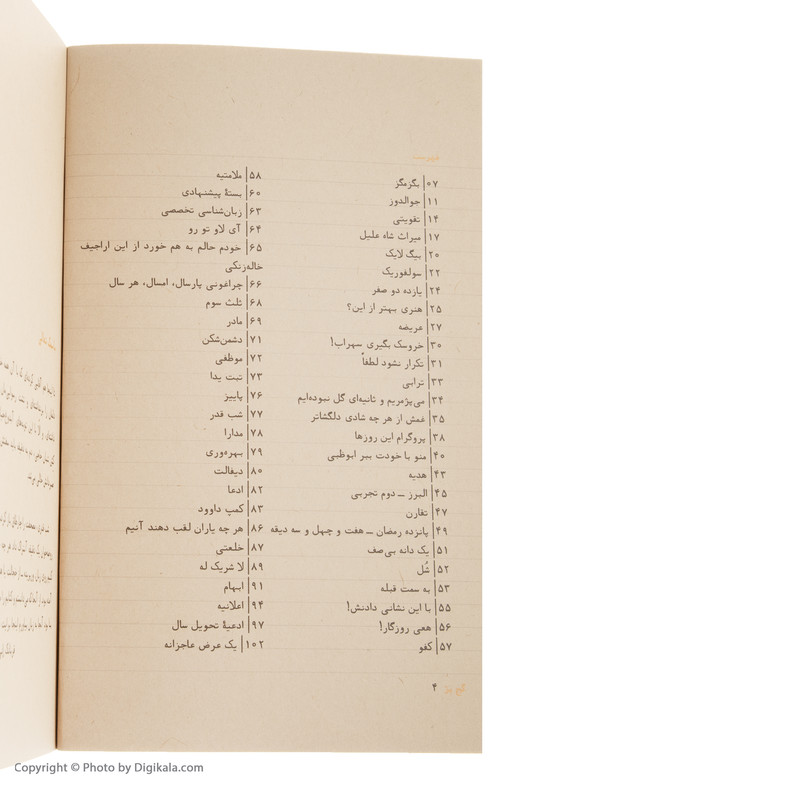 فهرست
۰۷ | بگزمگز
۱۱ | جوالدوز
۱۴ | تقویتی
۱۷ | میراث شاه علیل
۲۰ | بیگ لایک
۲۲ | سولفوریک
۲۴ | یازده دو صفر
۲۵ | هنری بهتر از این؟
۲۷ | عریضه
۳۰ | خروسک بگیری سهراب!
۳۱ | تکرار نشود لطفاً
۳۳ | ترابی
۳۴ | می‌پژمریم و ثانیه‌ای گل نبوده‌ایم
۳۵ | غمش از هر چه شادی دلگشاتر
۳۸ | پروگرام این روزها
۴۰ | منو با خودت ببر ابوظبی
۴۳ | هدیه
۴۵ | البرز ــ دوم تجربی
۴۷ | تقارن
۴۹ | پانزده رمضان ــ هفت و چهل و سه دیقه
۵۱ | یک دانه بی‌صف
۵۲ | شُل
۵۳ | به سمت قبله
۵۵ | با این نشانی دادنش!
۵۶ | هعی روزگار!
۵۷ | کفو
۵۸ | ملامتیه
۶۰ | بستهٔ پیشنهادی
۶۳ | زبان‌شناسی تخصصی
۶۴ | آی لاو تو رو
۶۵ | خودم حالم به هم خورد از این اراجیف
خاله‌زنکی
۶۶ | چراغونی پارسال، امسال، هر سال
۶۸ | ثلث سوم
۶۹ | مادر
۷۱ | دشمن‌شکن
۷۲ | موظفی
۷۳ | تبت یدا
۷۶ | پاییز
۷۷ | شب قدر
۷۸ | مدارا
۷۹ | بهره‌وری
۸۰ | دیفالت
۸۲ | ادعا
۸۳ | کمپ داوود
۸۶ | هر چه یاران لقب دهند آنیم
۸۷ | خلعتی
۸۹ | لا شریک له
۹۱ | ابهام
۹۴ | اعلانیه
۹۷ | ادعیهٔ تحویل سال
۱۰۲ | یک عرض عاجزانه
۴
Copyright © Photo by Digikala.com